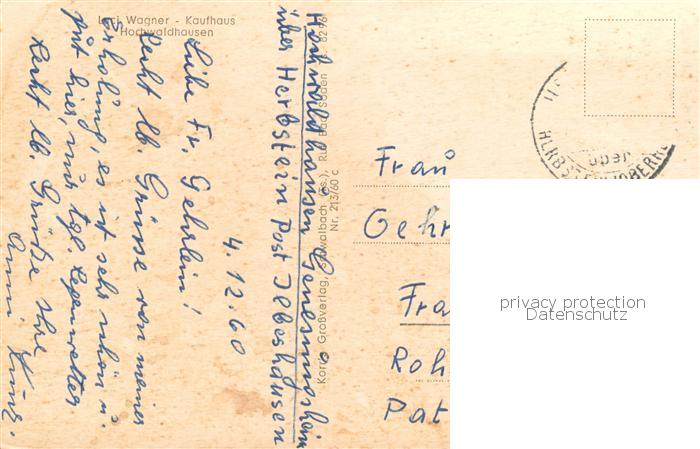 Leni Wagner - Kaufhaus
Hochwaldhausen
Hochwaldhausen Genesungsheim
über Herbstein Post Ilbeshausen
4.12.60
Liebe Fr. Gehrlein!
Recht lb. Grüsse von meiner
Erholung, es ist sehr schön u.
gut hier, nur tgl. Regenwetter
Recht lb. Grüße Ihre
Anni Kunz.
Korr's Großverlag, Schwalbach (Ts.), Ruf Bad Soden
Nr. 213/60 c
über
Frau
Gehr
Fra
Roh
Pat
privacy protection
Datenschutz